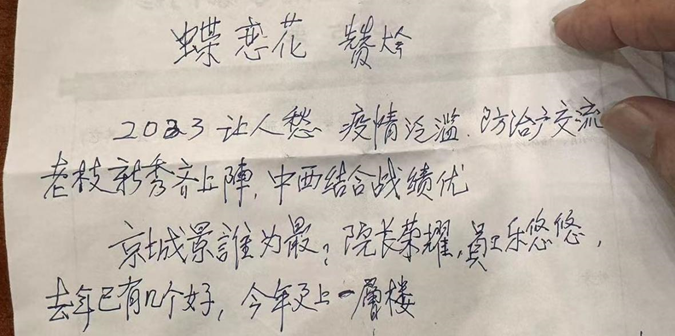 蝶恋花 赞
2023让人愁 疫情泛滥.防治交流
老枝新秀齐上陣,中西结合战绩优
京城景誰为最?院长荣耀,員工乐悠悠,
去年已有几个好,今年更上一層楼